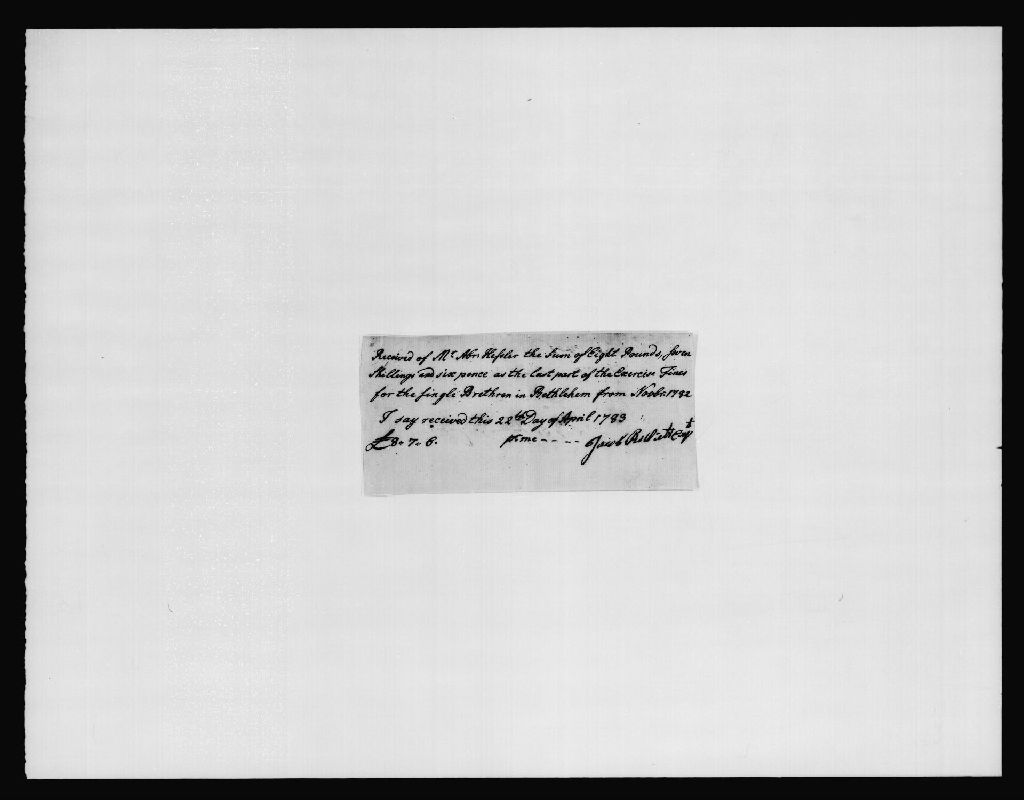 Received of Mr. Abr: Hessler the Sum of Eight Pounds, Seven
Shillings and six pence as the last part of the Exercise Fines
for the single Brethren in Bethlehem from Novbr: 1782
I say received this 22th Day of April 1783
£8. 7. 6. pr me - - - - Jacob